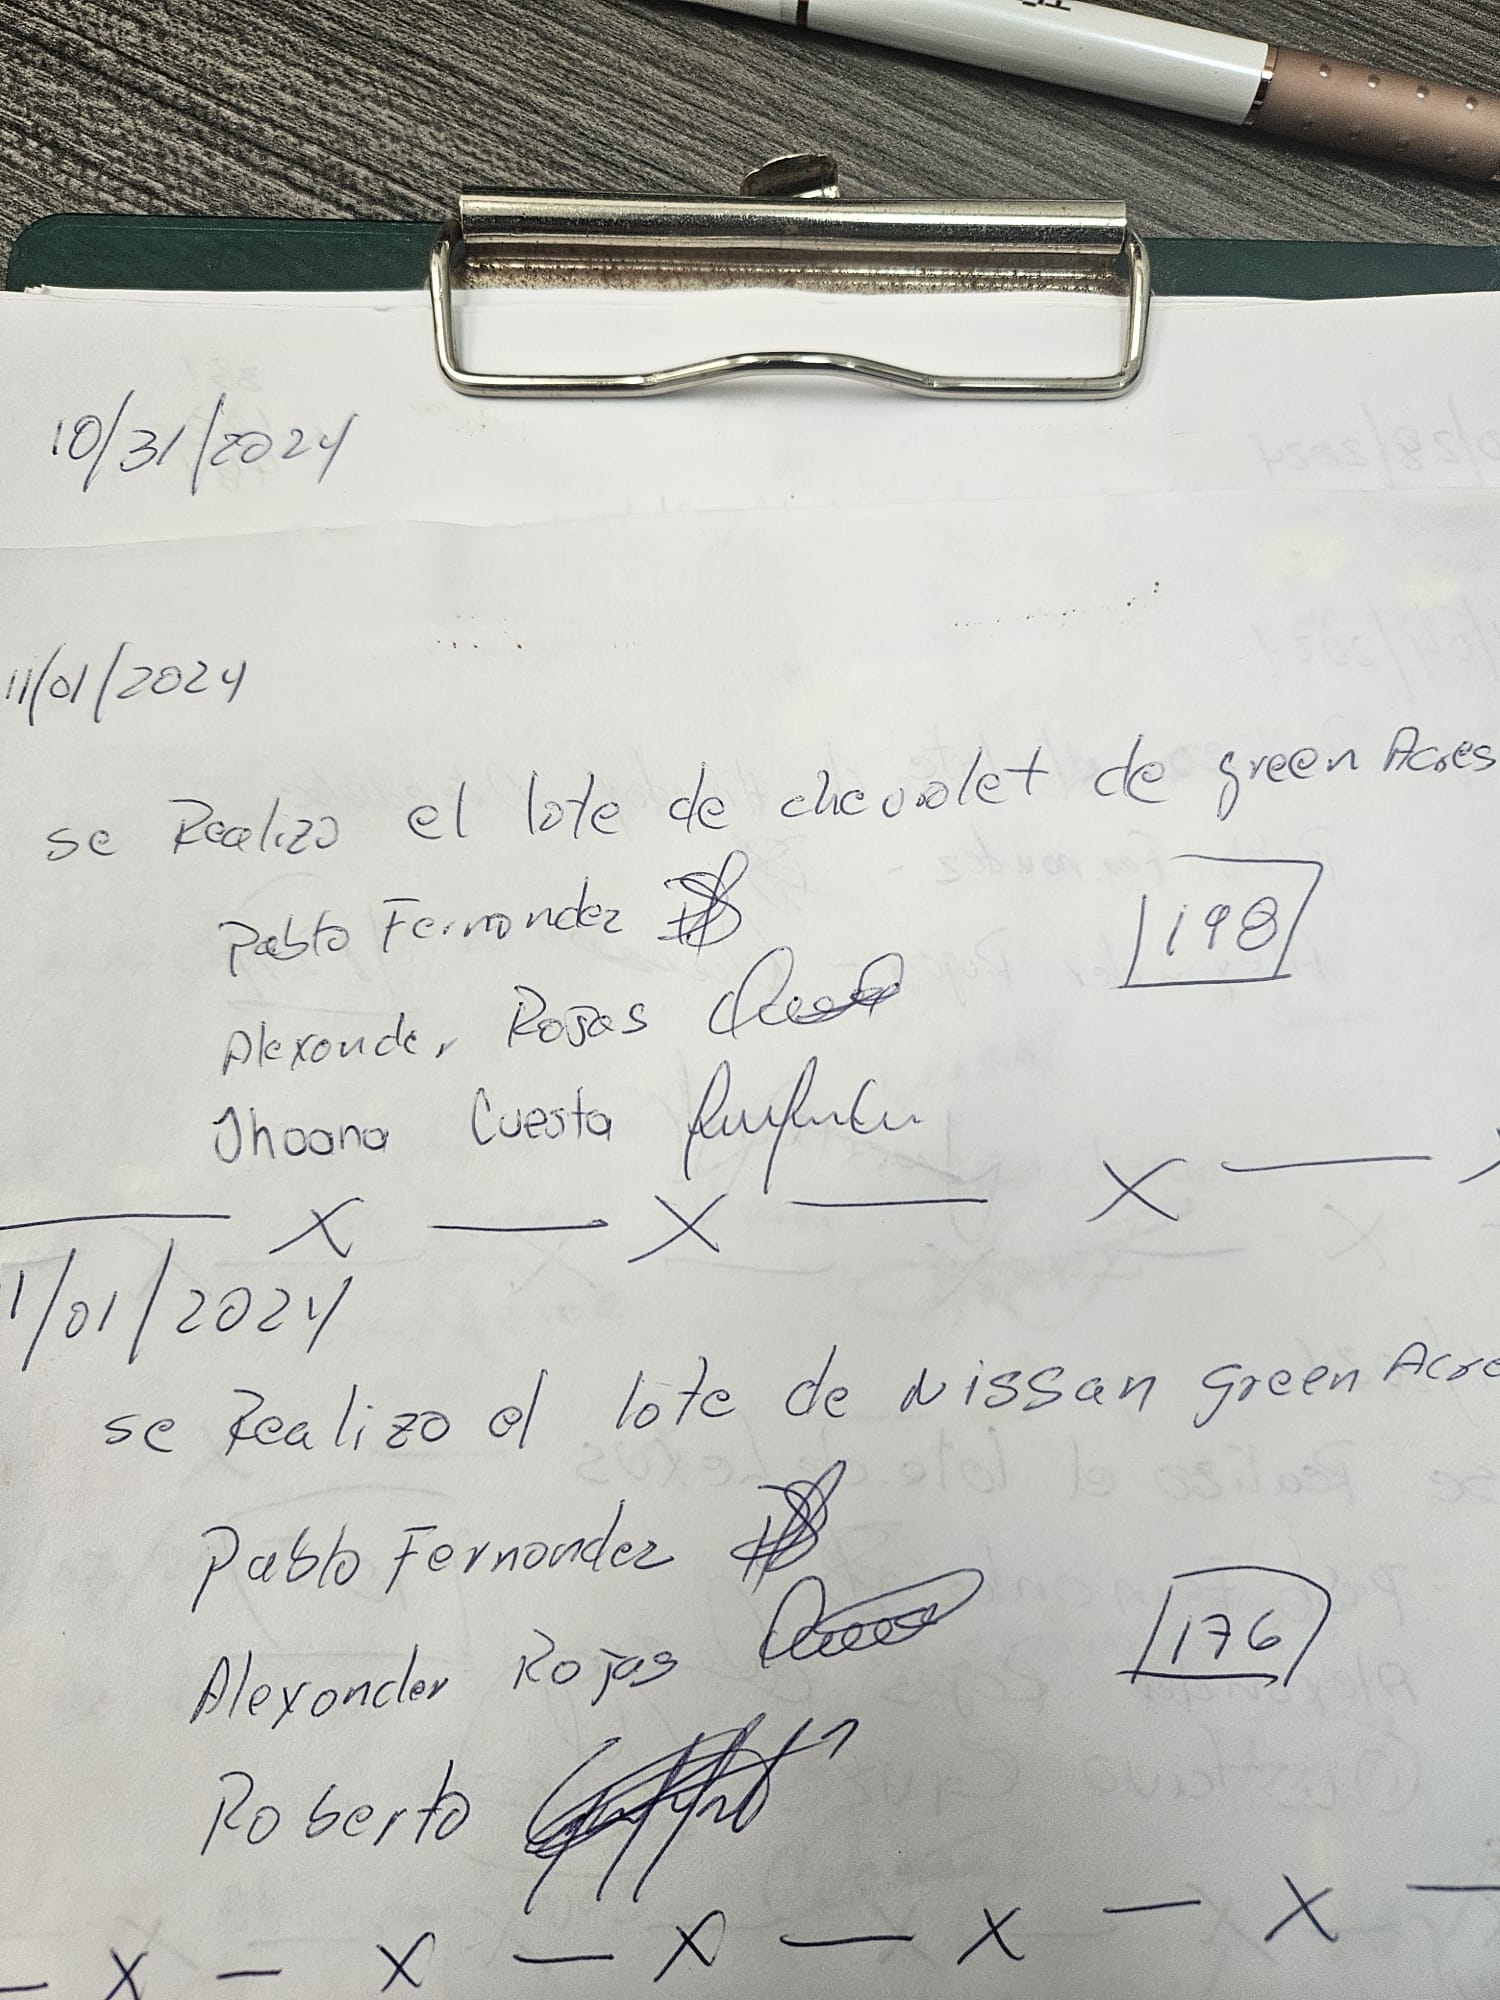 10/31/2024
11/01/2024
se Realizo el lote de chevrolet de green Acres
Pablo Fernandez
198
Alexander Rojas
Jhoana Cuesta
X X X
1/01/2024
se Realizo el lote de Nissan green Acre
Pablo Fernandez
176
Alexander Rojas
Roberto
X X X X X